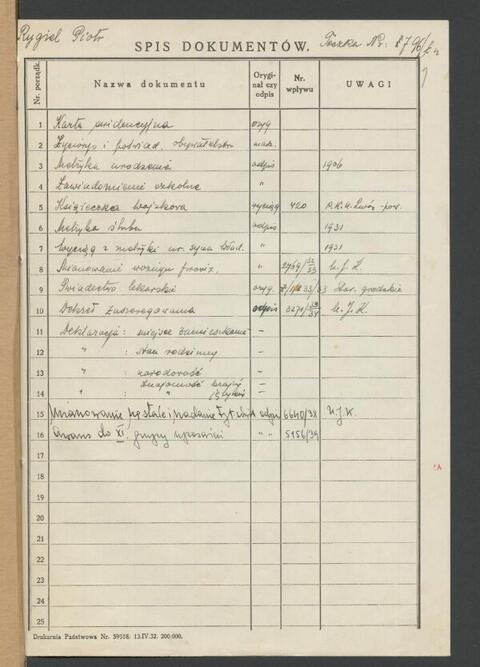 Rygiel Piotr
SPIS DOKUMENTÓW.
Teczka Nr:
Nr. porządk.
Nazwa dokumentu
Orygi-
nał czy
odpis
Nr.
wpływu
UWAGI
1 Karta ewidencyjna oryg
2 Życiorys i poświad. obywatelstw
3 Metryka urodzenia odpis 1906
4 Zaświadczenie szkolne "
5 Książeczka wojskowa wyciąg 420
6 Metryka ślubu odpis 1931
7 Wyciąg z metryki ur. syna Wład. " 1931
8 Mianowanie woźnym prowiz. " 2769/32/33 U. J. K.
9 Świadectwo lekarskie oryg. Star. grodzkie
10 Dekret zaszeregowania odpis 3271/33/34 U. J. K.
11 Deklaracja: miejsce zamieszkania —
12 " : stan rodzinny —
13 " : narodowość —
14 " : znajomość krajów i języków —
15 Mianowanie na stałe i nadanie odpis 6640/38 U.J.K.
16 Awans do XI. grupy uposażeń " " 5156/39
17
18
19
20
21
22
23
24
25
Drukarnia Państwowa Nr. 59518. 13.IV.32. 200.000.